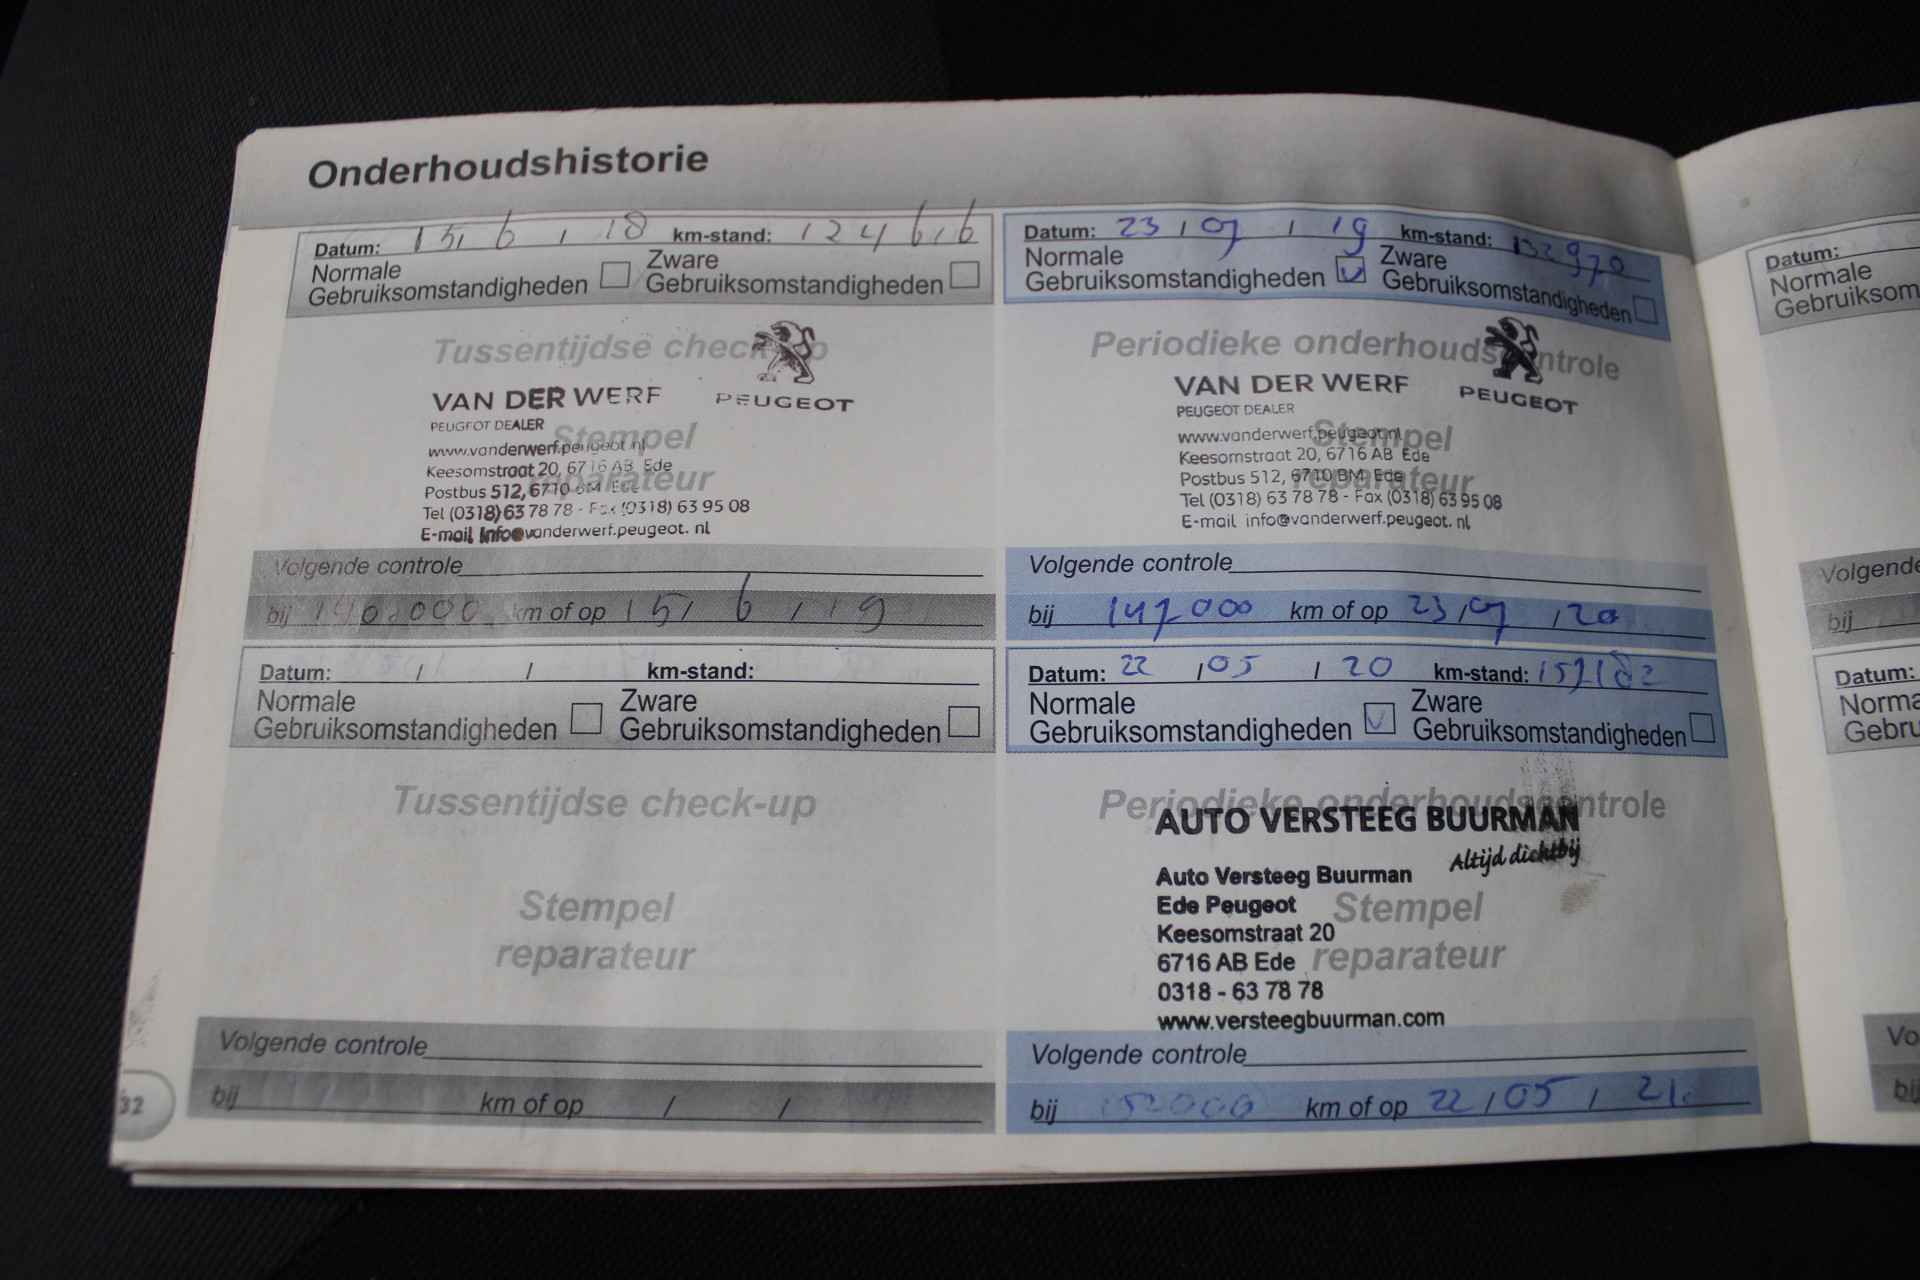 Onderhoudshistorie
Datum: 15, 6 , 18 km-stand: 124616
Normale
Gebruiksomstandigheden
Zware
Gebruiksomstandigheden
Tussentijdse check-up
VAN DER WERF
PEUGEOT
PEUGEOT DEALER
Stempel
www.vanderwerf.peugeot.nl
Keesomstraat 20, 6716 AB Ede
reparateur
Postbus 512, 6710 BM Ede
Tel (0318) 63 78 78 - Fax (0318) 63 95 08
E-mail info@vanderwerf.peugeot. nl
Volgende controle
bij 140.000 km of op 15, 6 , 19
Datum: / / km-stand:
Normale
Gebruiksomstandigheden
Zware
Gebruiksomstandigheden
Tussentijdse check-up
Stempel
reparateur
Volgende controle
bij km of op / /
32
Datum: 23 / 07 / 19 km-stand: 132970
Normale
Gebruiksomstandigheden v
Zware
Gebruiksomstandigheden
Periodieke onderhoudscontrole
VAN DER WERF
PEUGEOT
PEUGEOT DEALER
Stempel
www.vanderwerf.peugeot.nl
Keesomstraat 20, 6716 AB Ede
reparateur
Postbus 512, 6710 BM Ede
Tel (0318) 63 78 78 - Fax (0318) 63 95 08
E-mail info@vanderwerf.peugeot. nl
Volgende controle
bij 147000 km of op 23 / 07 / 20
Datum: 22 / 05 / 20 km-stand:
Normale
Gebruiksomstandigheden v
Zware
Gebruiksomstandigheden
Periodieke onderhoudscontrole
AUTO VERSTEEG BUURMAN
Altijd dichtbij
Auto Versteeg Buurman
Ede Peugeot
Stempel
Keesomstraat 20
6716 AB Ede
reparateur
0318 - 63 78 78
www.versteegbuurman.com
Volgende controle
bij km of op 22 / 05 / 21
Datum:
Normale
Volgende
bij
Datum: